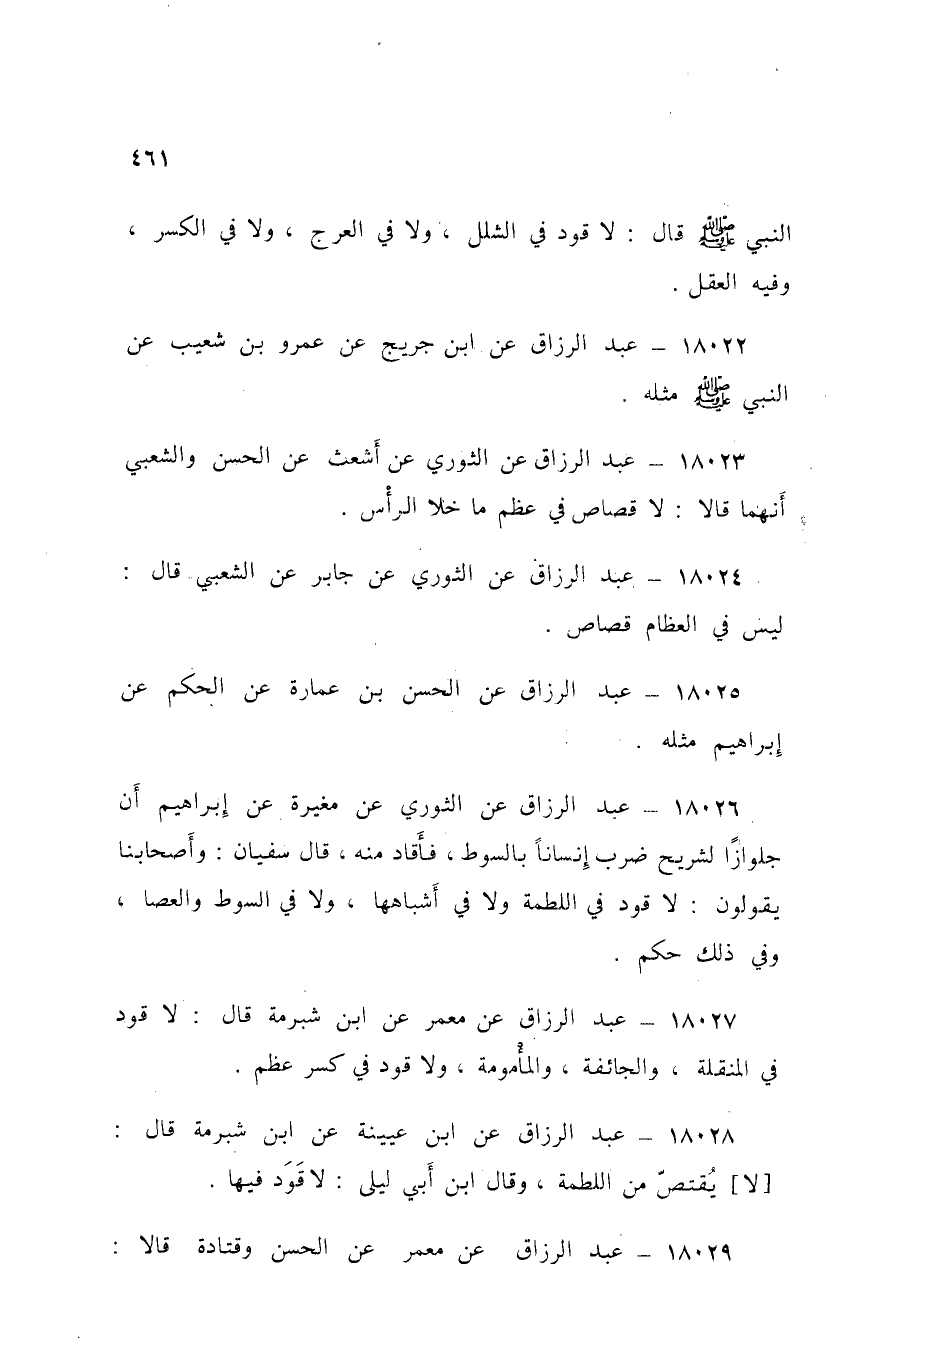 ٤٦١
النبي ﷺ قال : لا قود في الشلل ، ولا في العرج ، ولا في الكسر ،
وفيه العقل .
١٨٠٢٢ – عبد الرزاق عن ابن جريج عن عمرو بن شعيب عن
النبي ﷺ مثله .
١٨٠٢٣ – عبد الرزاق عن الثوري عن أشعث عن الحسن والشعبي
أنهما قالا : لا قصاص في عظم ما خلا الرأْس .
١٨٠٢٤ – عبد الرزاق عن الثوري عن جابر عن الشعبي قال :
ليس في العظام قصاص .
١٨٠٢٥ – عبد الرزاق عن الحسن بن عمارة عن الحكم عن
إبراهيم مثله .
١٨٠٢٦ – عبد الرزاق عن الثوري عن مغيرة عن إبراهيم أن
جلوازًا لشريح ضرب إنساناً بالسوط ، فأقاد منه ، قال سفيان : وأصحابنا
يقولون : لا قود في اللطمة ولا في أشباهها ، ولا في السوط والعصا ،
وفي ذلك حكم .
١٨٠٢٧ – عبد الرزاق عن معمر عن ابن شبرمة قال : لا قود
في المنقلة ، والجائفة ، والمأْمومة ، ولا قود في كسر عظم .
١٨٠٢٨ – عبد الرزاق عن ابن عيينة عن ابن شبرمة قال :
[لا] يُقتصّ من اللطمة ، وقال ابن أبي ليلى : لا قَوَد فيها .
١٨٠٢٩ – عبد الرزاق عن معمر عن الحسن وقتادة قالا :